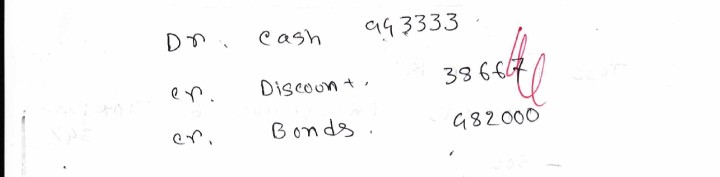 Dr. cash 943333
cr. Discount. 38667
cr. Bonds. 982000